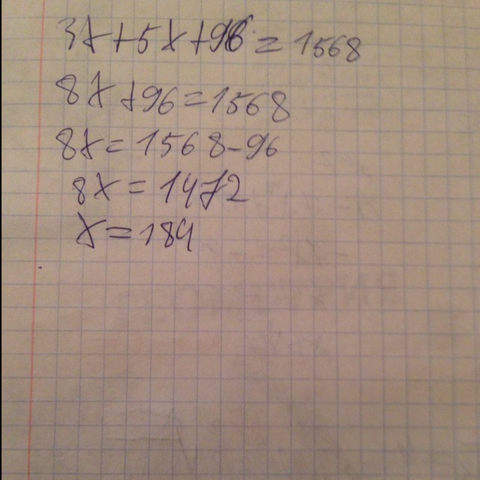 3x+5x+96=1568
8x+96=1568
8x=1568-96
8x=1472
x=184